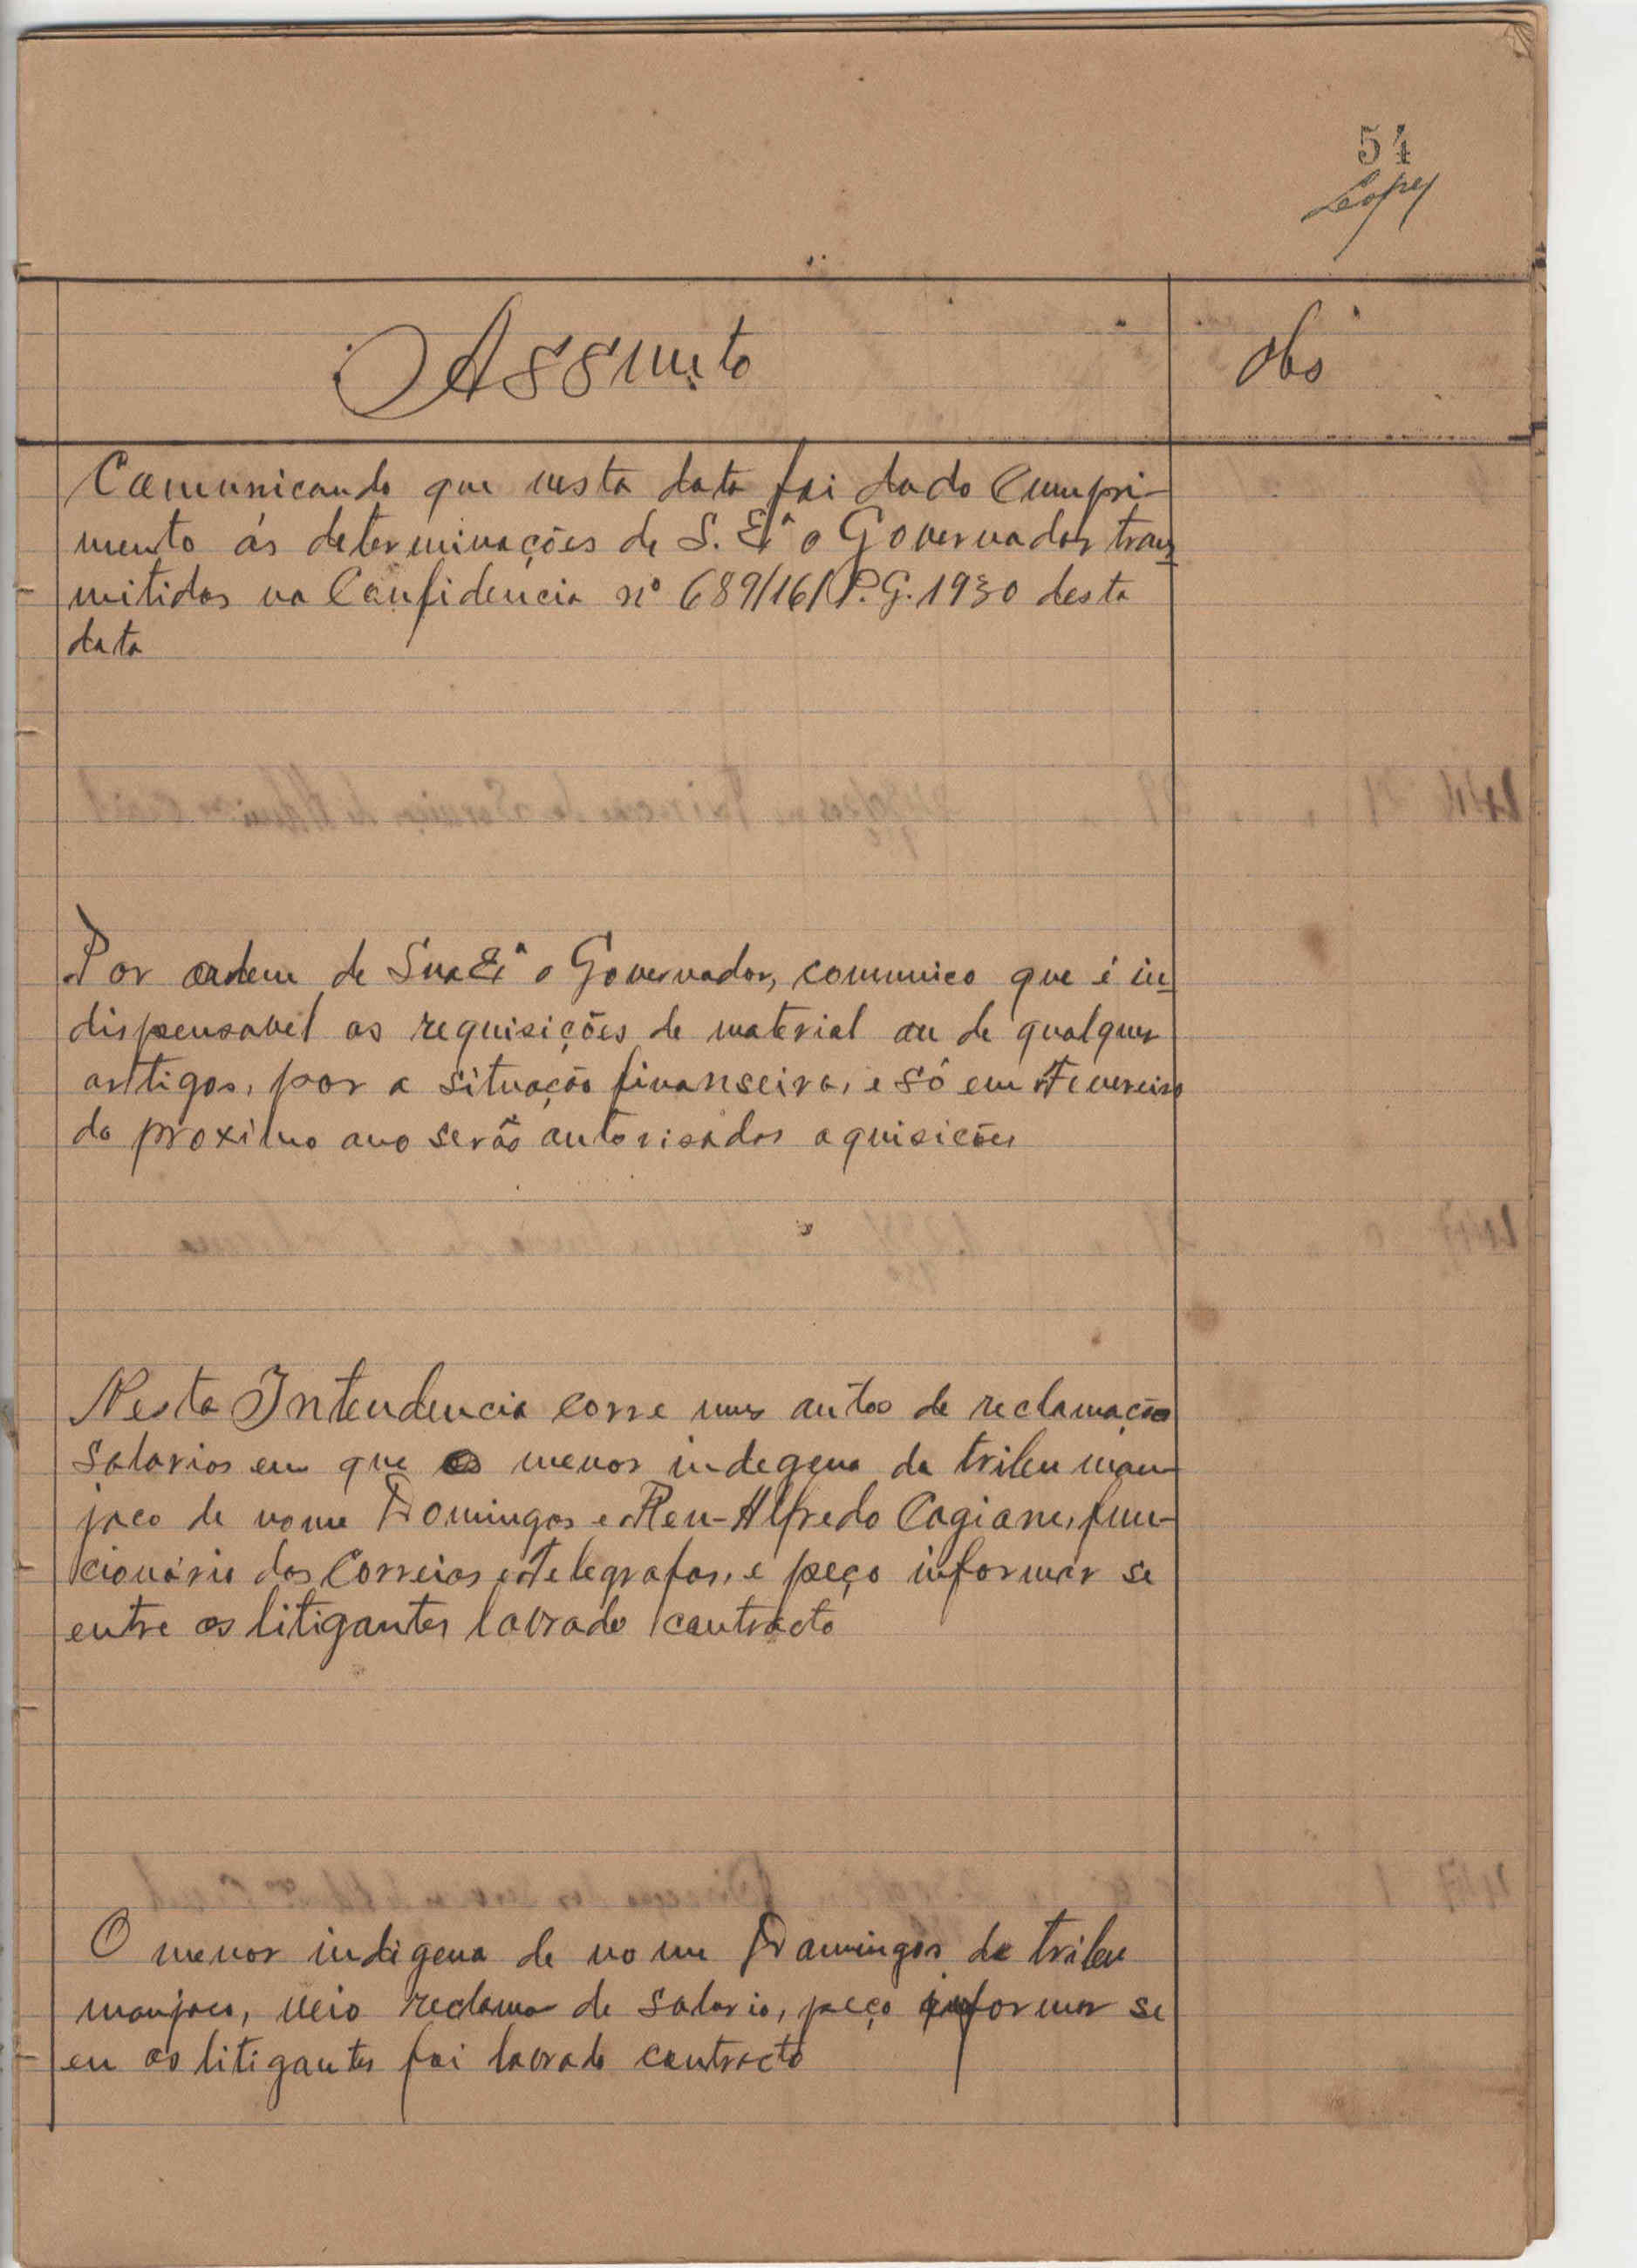 54
Lopes
Assunto
Obs
Comunicando que nesta data foi dado Cumpri-
mento ás determinações de S. Exª o Governador trans
mitidas na Confidencia nº 689/16/P.G. 1930 desta
data
Por ordem de Sua Exª o Governador, comunico que é in
dispensavel as requisições de material ou de qualquer
arttigos, por a situação finanseira, e só em Fevereiro
do proximo ano serão autorisadas aquisicões
Nesta Intendencia corre uns autos de reclamação
Salarios em que os menor indegena da tribu man-
jaco de nome Domingos e Reu-Alfredo Cagiane, fun-
cionário dos Correios e Telegrafos, e peço informar se
entre os litigantes lavrado contracto
O menor indigena de nome Domingos da tribu
manjaco, veio reclamar de Salario, peço informar se
en os litigantes foi lavrado contracto